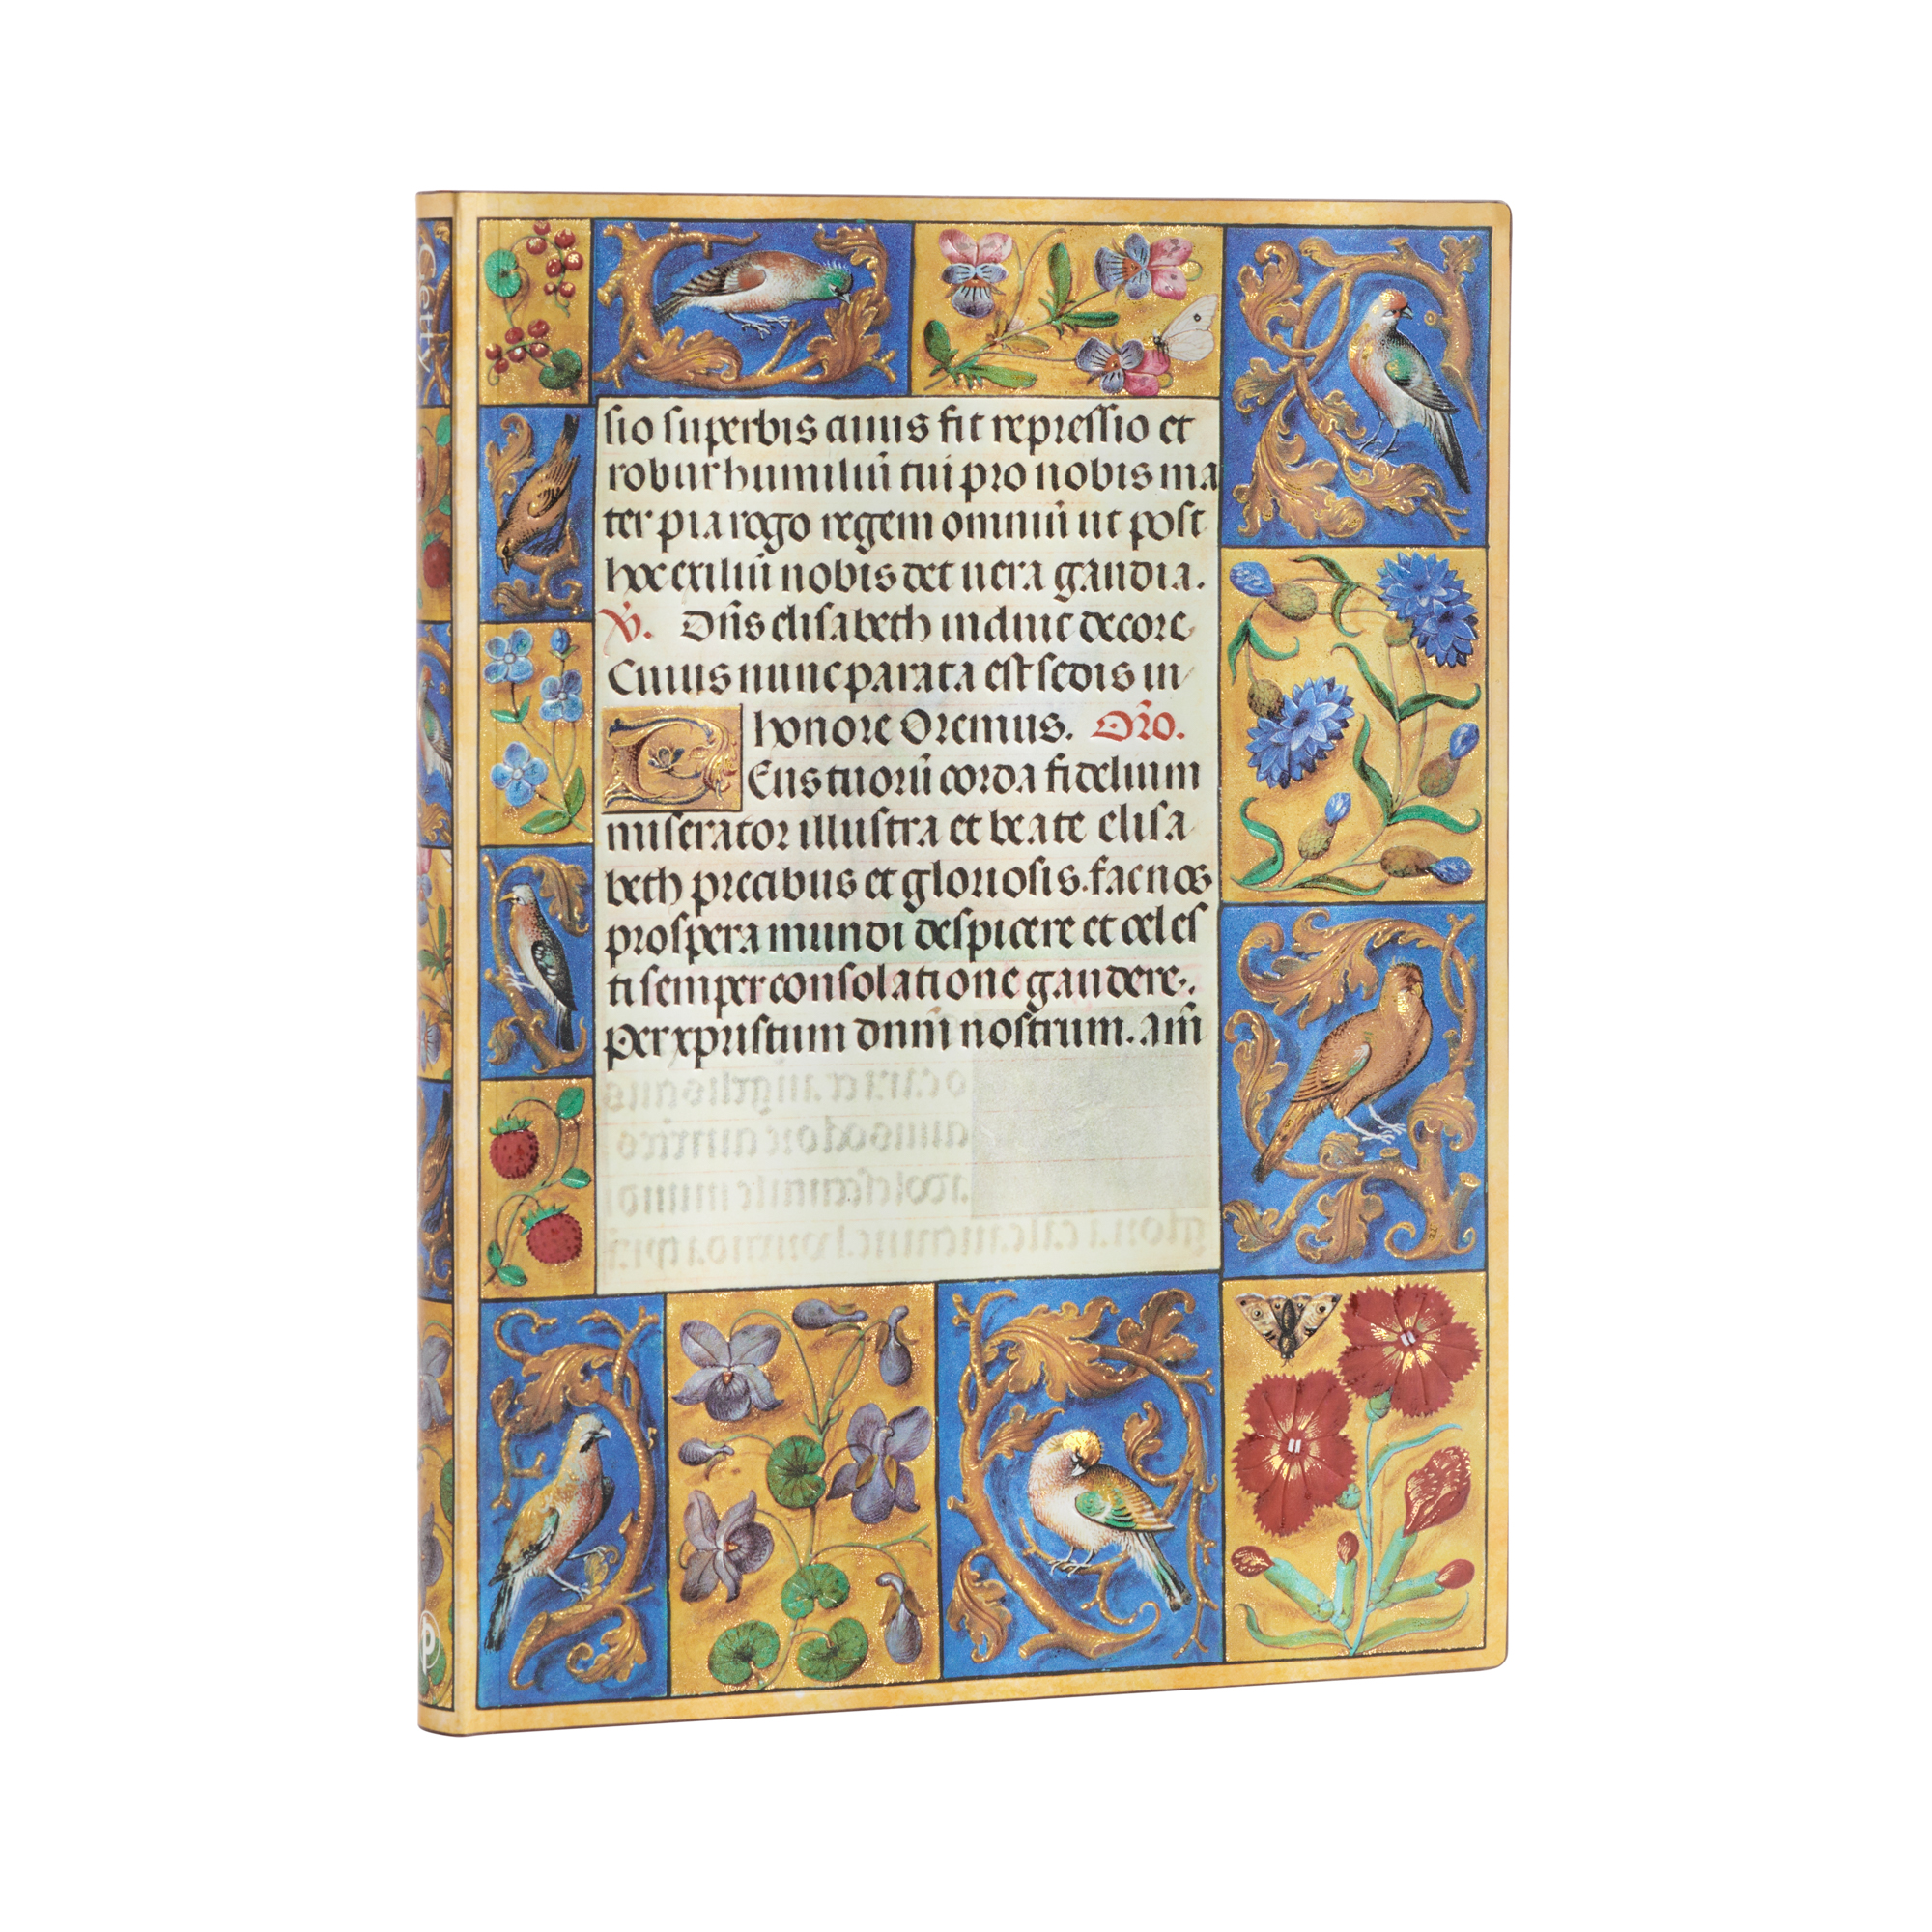 sio superbis cuius fit repressio et
robur humiliū tui pro nobis ma
ter pia rogo regem omniū ut post
hoc exiliū nobis det uera gaudia.
V̄. Dn̄s elisabeth induit decore
Cuius nunc parata est sedis in
honore Oremus. Or̄o.
DEus tuorū corda fidelium
miserator illustra et beate elisa
beth precibus et gloriosis. fac nos
prospera mundi despicere et celes
ti semper consolatione gaudere.
Per xpristum dnm̄ nostrum. am̄
Getty
P